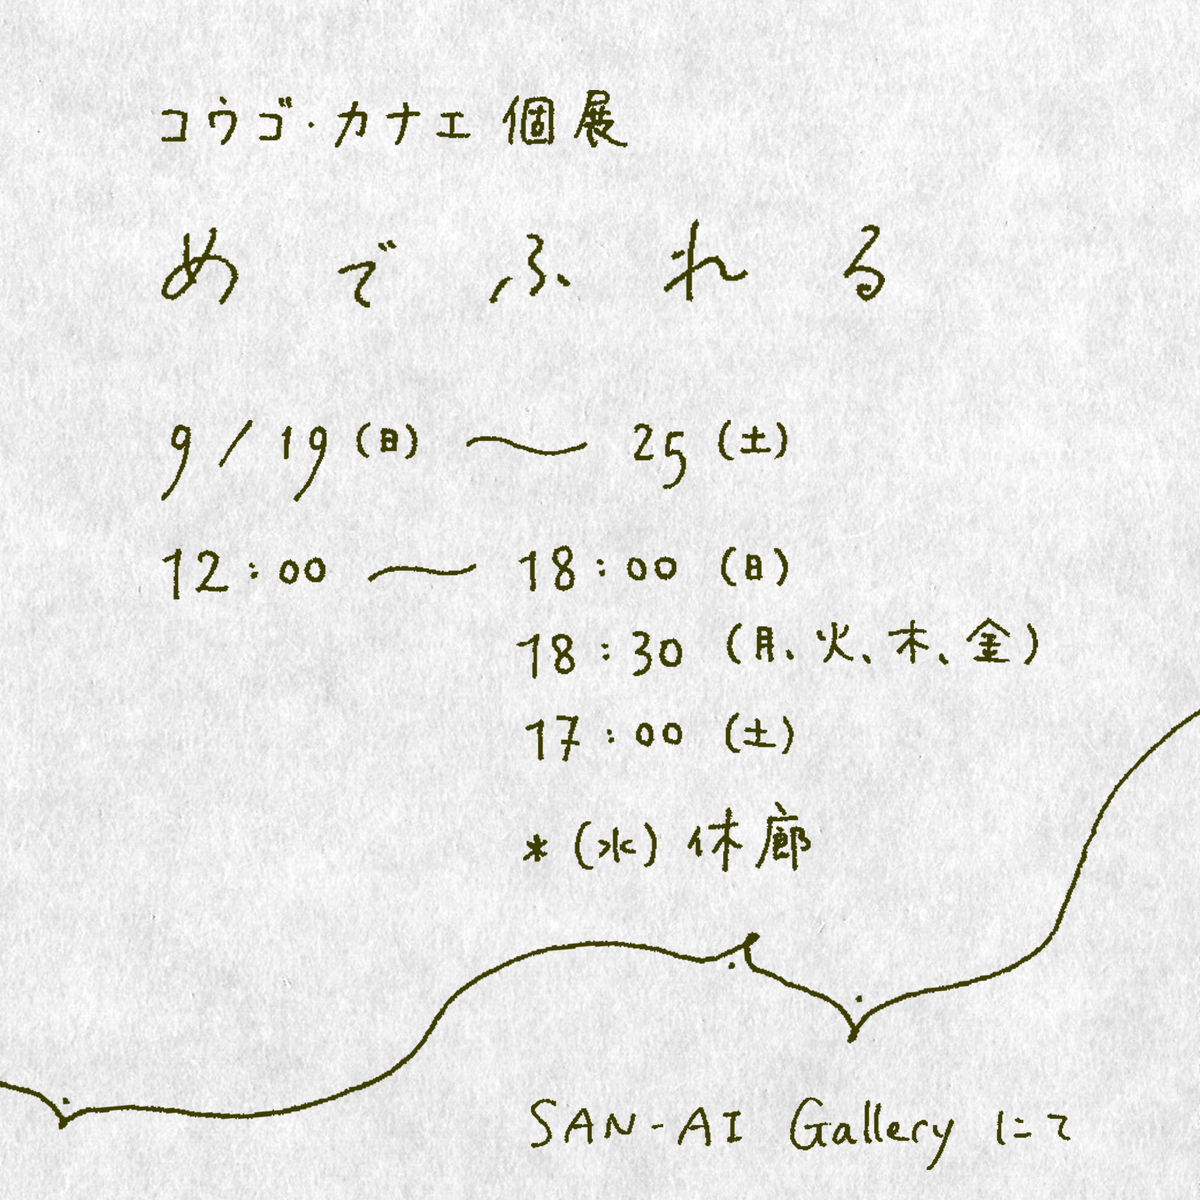 コウゴ・カナエ 個展
めでふれる
9/19(日)〜25(土)
12:00〜18:00(日)
18:30(月、火、木、金)
17:00(土)
*(水)休廊
SAN-AI Galleryにて